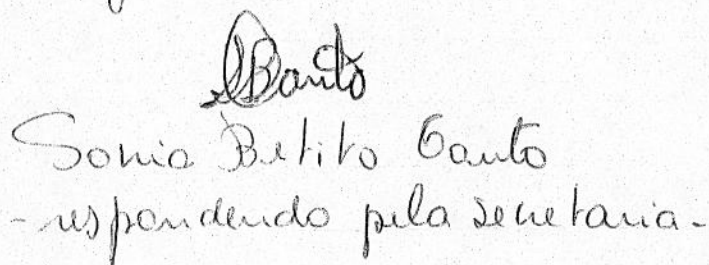 Sonia Betito Canto
- respondendo pela secretaria -